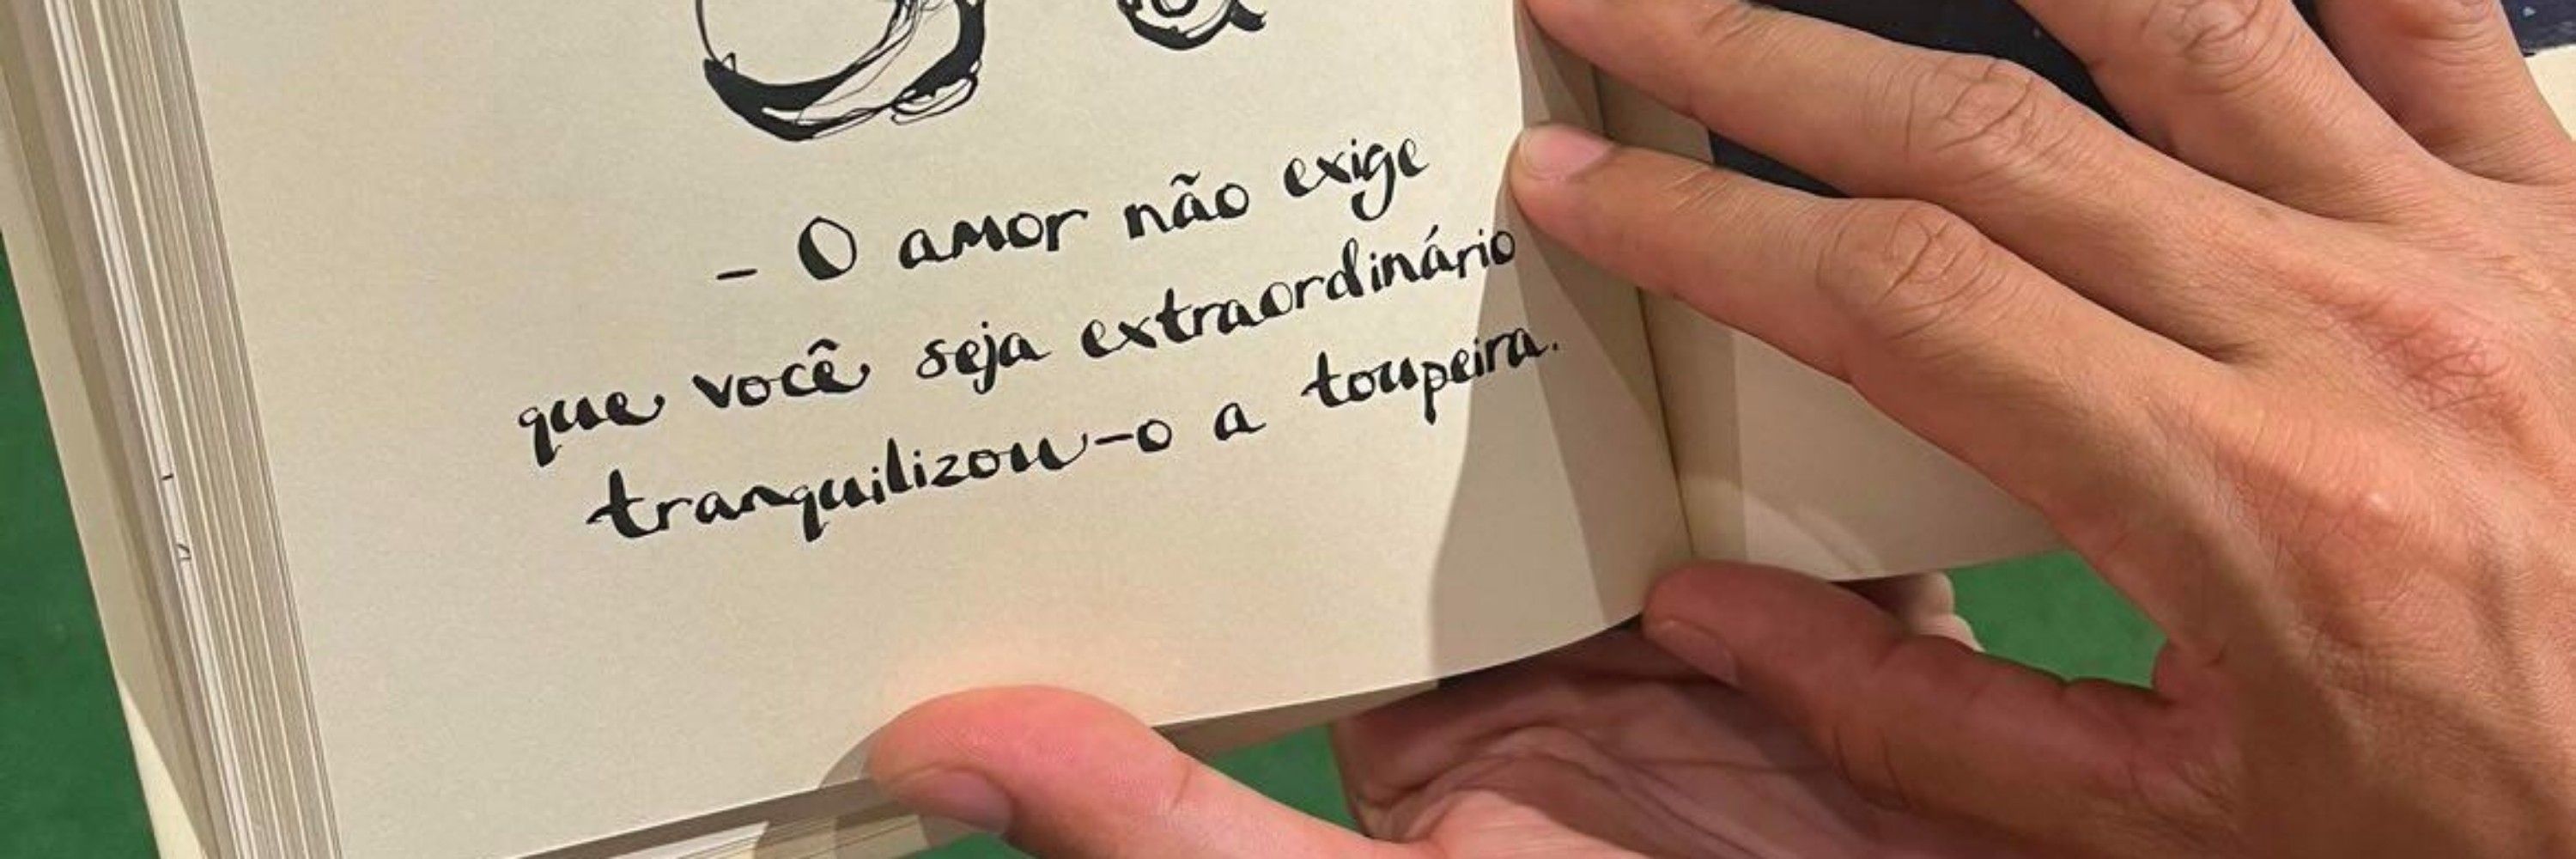 – O amor não exige
que você seja extraordinário
tranquilizou-o a toupeira.